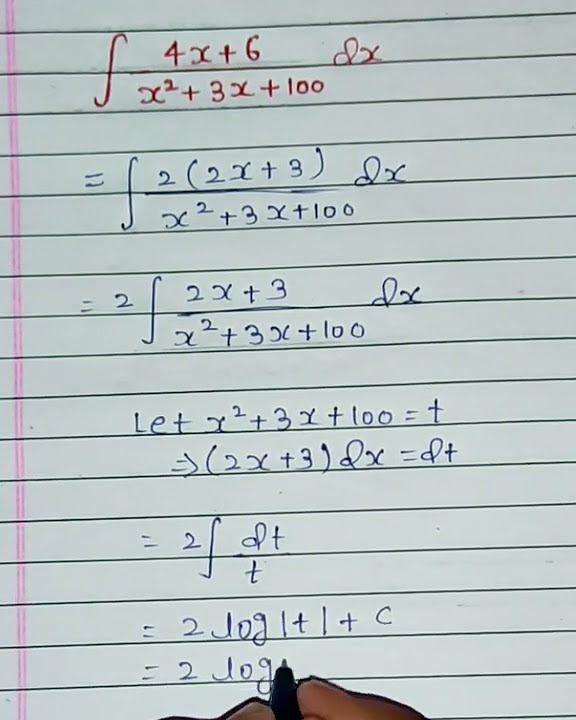 ∫ 4x+6 / x²+3x+100 dx
= ∫ 2(2x+3) / x²+3x+100 dx
= 2 ∫ 2x+3 / x²+3x+100 dx
Let x²+3x+100 = t
⇒ (2x+3) dx = dt
= 2 ∫ dt / t
= 2 log|t| + C
= 2 log